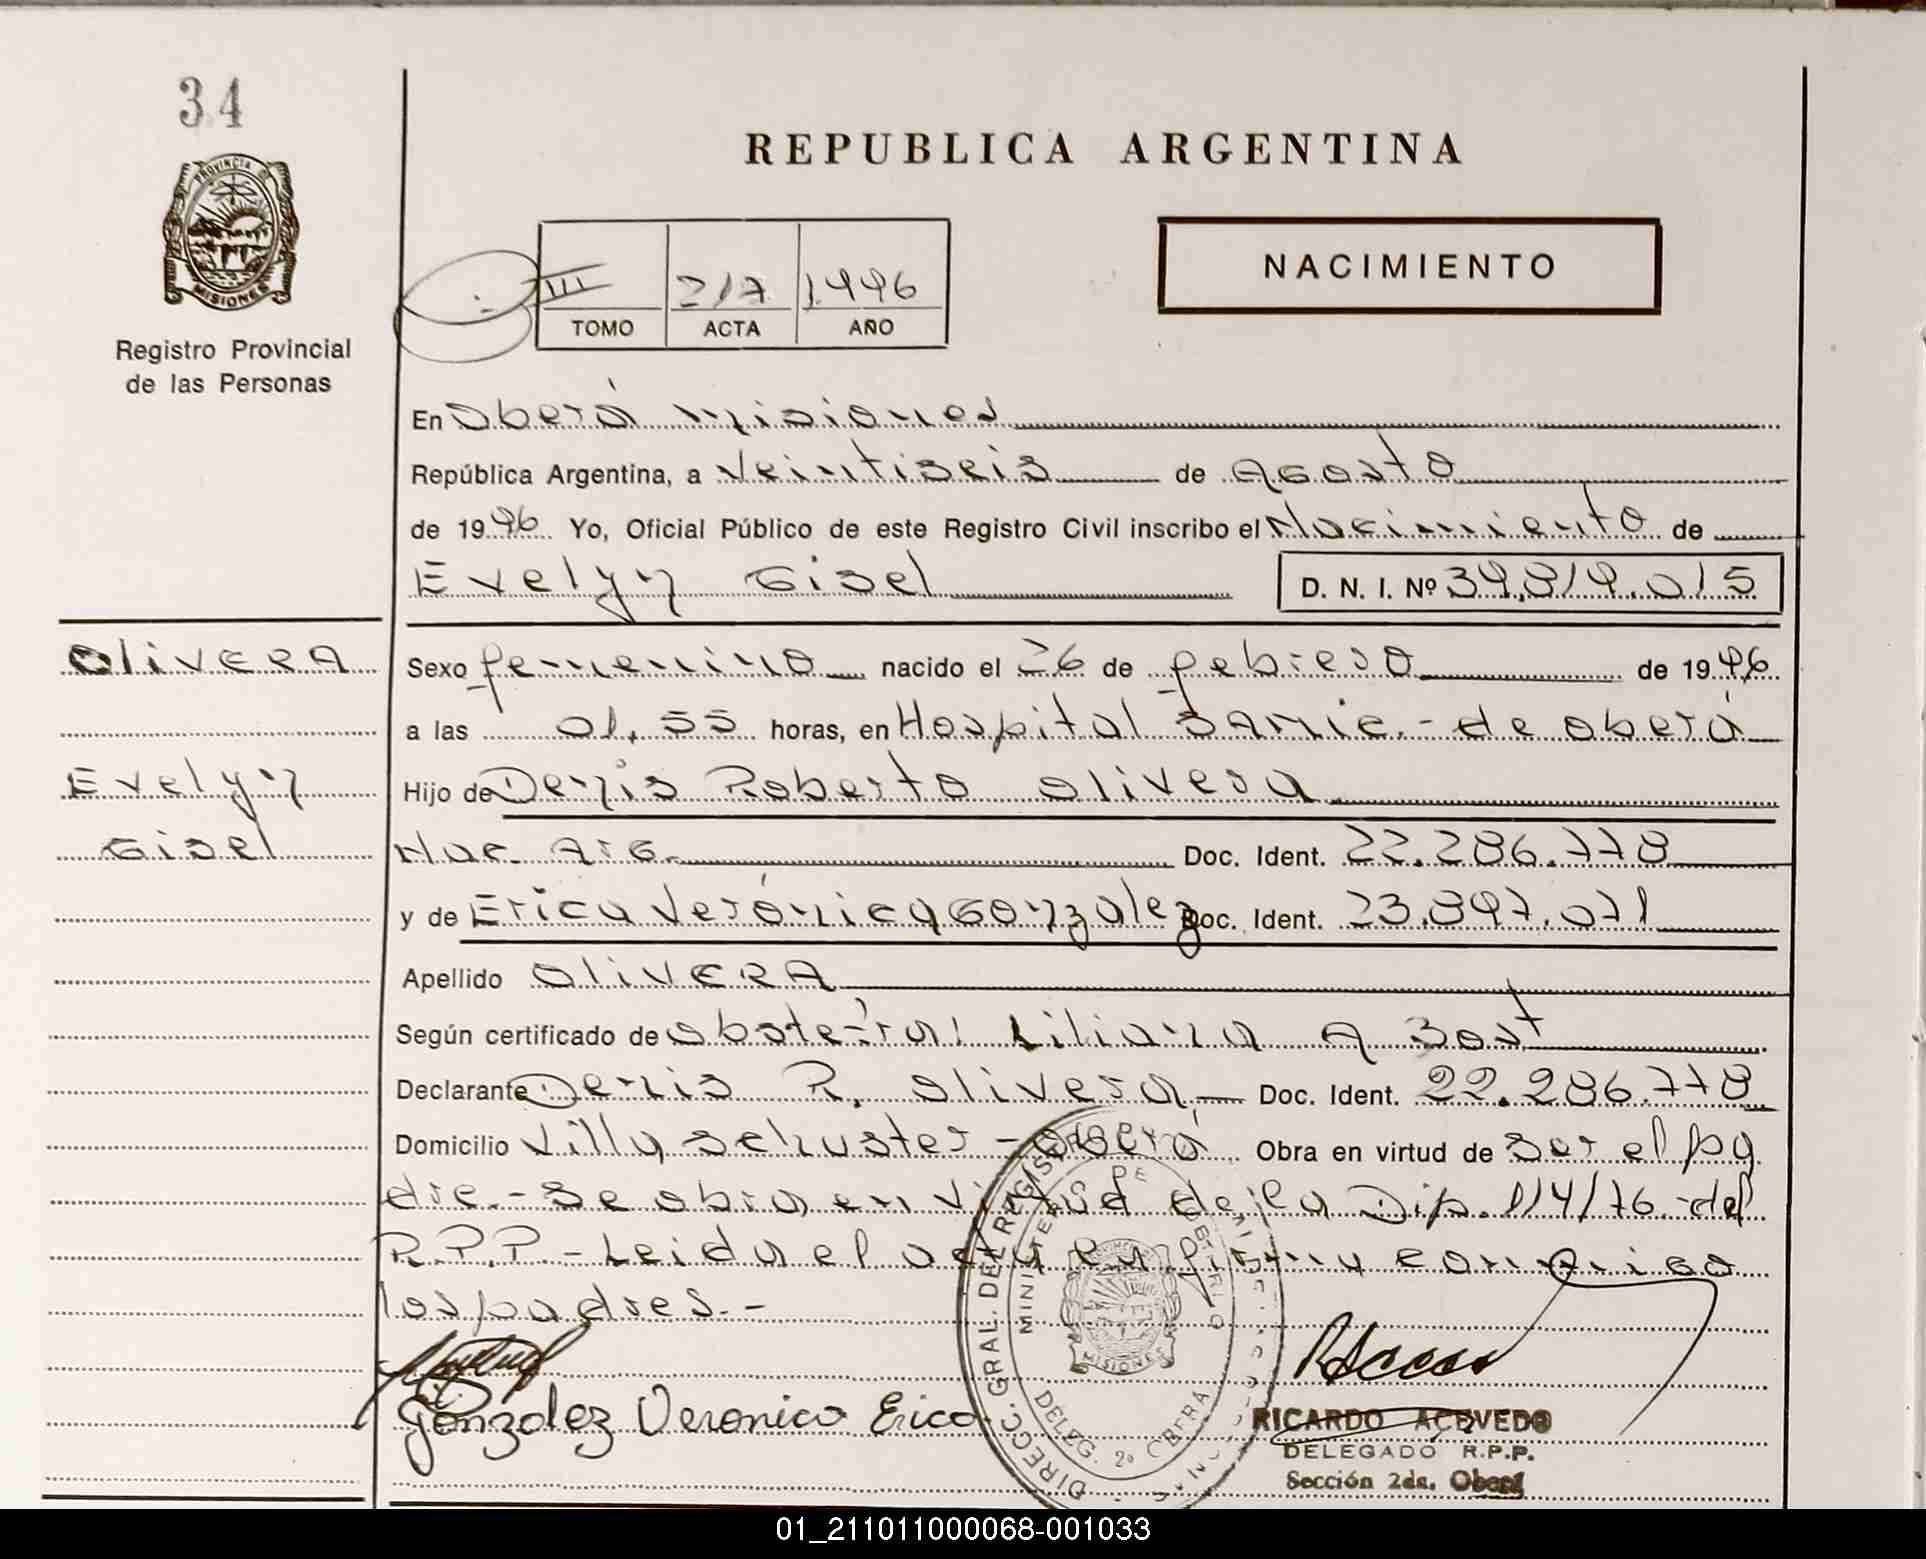 34
REPUBLICA ARGENTINA
PROVINCIA DE
MISIONES
NACIMIENTO
III 217 1996
TOMO ACTA AÑO
Registro Provincial
de las Personas
En Oberá Misiones
República Argentina, a veintiseis de Agosto
de 1996 Yo, Oficial Público de este Registro Civil inscribo el Nacimiento de
Evelyn Gisel D. N. I. Nº 39.819.015
OLIVERA
Evelyn
Gisel
Sexo femenino nacido el 26 de febrero de 1996
a las 01,55 horas, en Hospital SAMIC.- de Oberá
Hijo de Denis Roberto Olivera
Nac. Arg. Doc. Ident. 22.286.778
y de Erica Verónica Gonzalez Doc. Ident. 23.897.071
Apellido OLIVERA
Según certificado de obstetra: Liliana A Bost
Declarante Denis R. Olivera Doc. Ident. 22.286.778
Domicilio Villa Schuster - Oberá Obra en virtud de ser el pa
dre.- Se obra en virtud de la Dip. 114/76.- del
R.P.P.- Leida el acta la firma conmigo
los padres.-
Gonzalez Veronica Erica
DIRECC. GRAL. DEL REGISTRO
DELEG. 2º OBERA
MISIONES
RICARDO ACEVEDO
DELEGADO R.P.P.
Sección 2da. Oberá
01_211011000068-001033